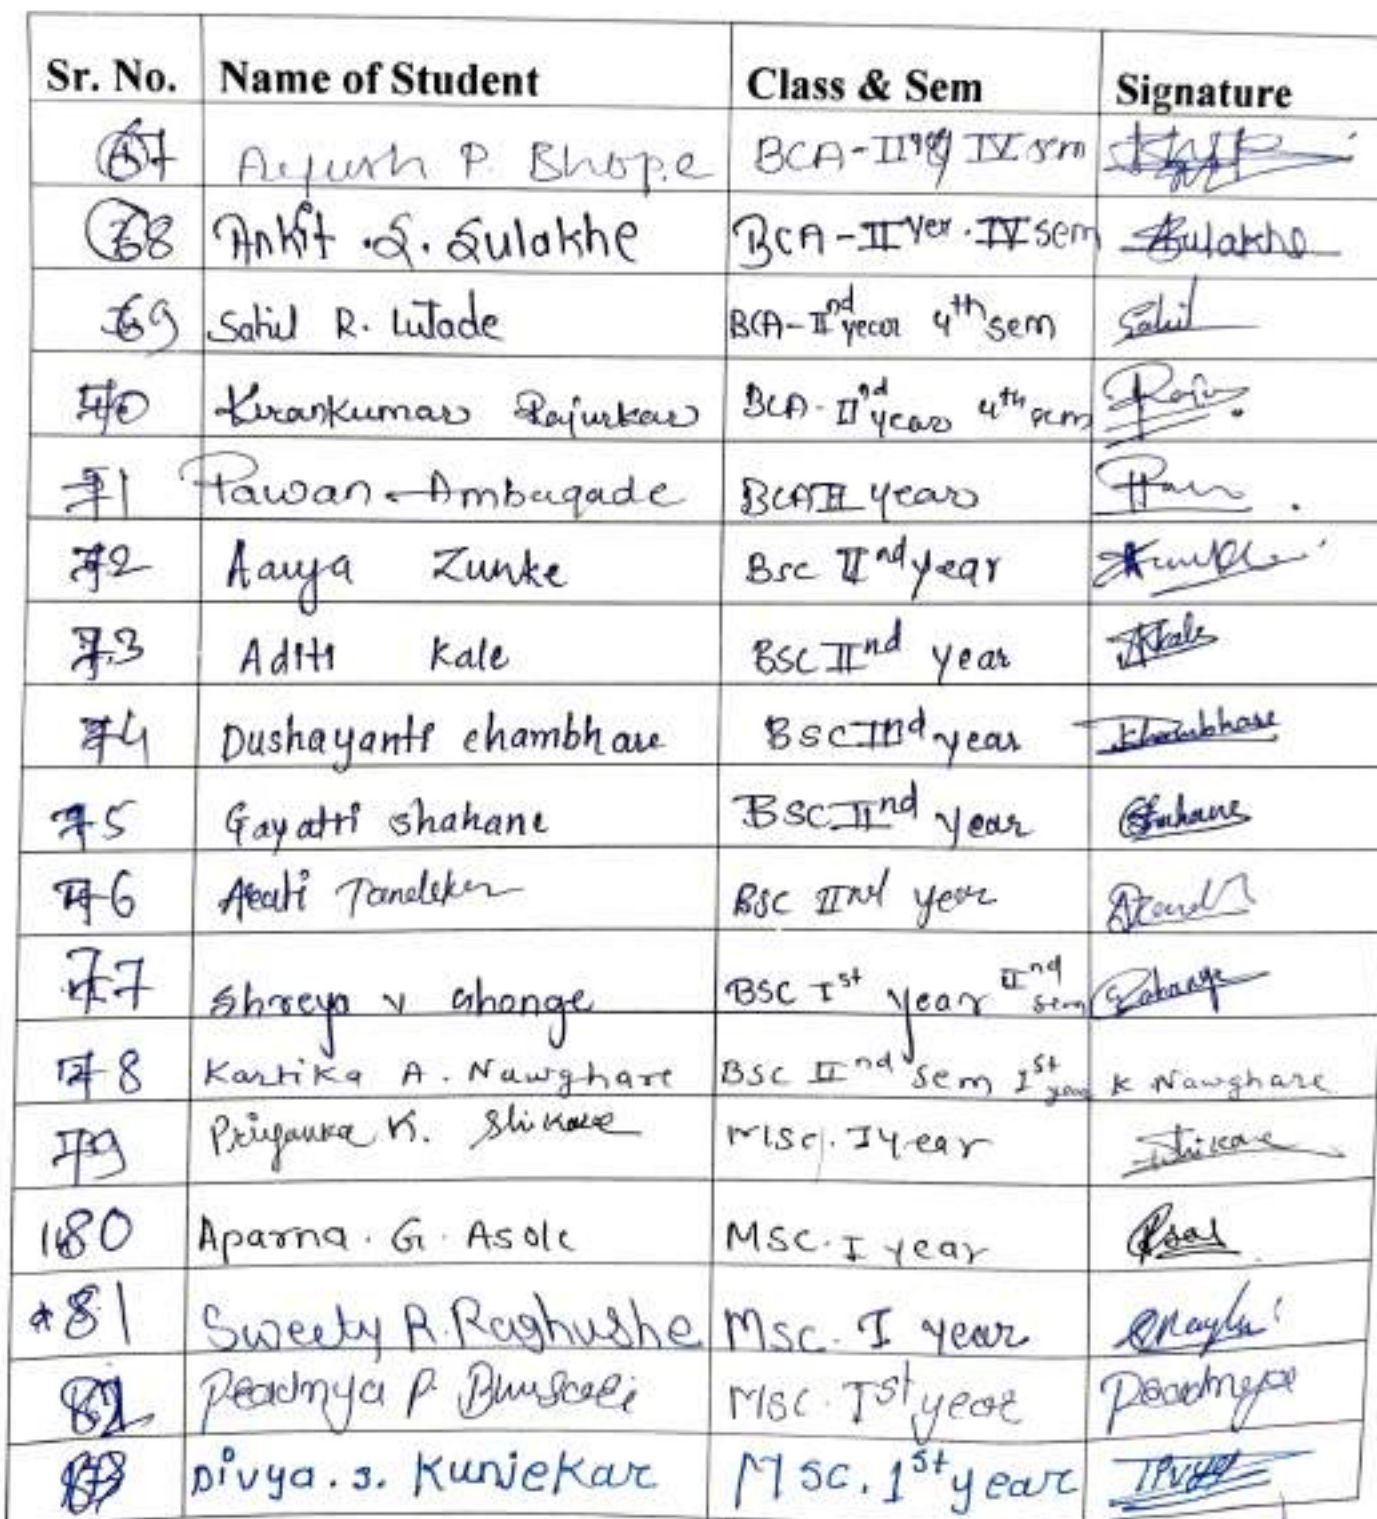 Sr. No. Name of Student Class & Sem Signature
67 Ayush P. Bhope BCA-II IV sem
68 Ankit .S. Sulakhe BCA-II yer. IV sem Sulakhe
69 Sahil R. Lutade BCA-IInd year 4th sem Sahil
70 Kirankumar Rajurkar BCA-IInd year 4th sem
71 Pawan Ambagade BCA II year
72 Aarya Zunke Bsc IInd year
73 Aditi Kale BSC IInd year AKale
74 Dushayanti chambhare BSC IInd year
75 Gayatri shahane BSC IInd year
76 Arati Tandekar BSC IInd year
77 Shreya v Ghonge BSC Ist year IInd sem
78 Kartika A. Nawghare BSC IInd sem 1st year K Nawghare
79 Priyanka K. Shikare MSc. I year
80 Aparna. G. Asole MSC. I year
81 Sweety R. Raghushe MSC. I year
82 Pradnya P. MSC. Ist year Pradnya
83 Divya. S. Kuniekar MSC. 1st year